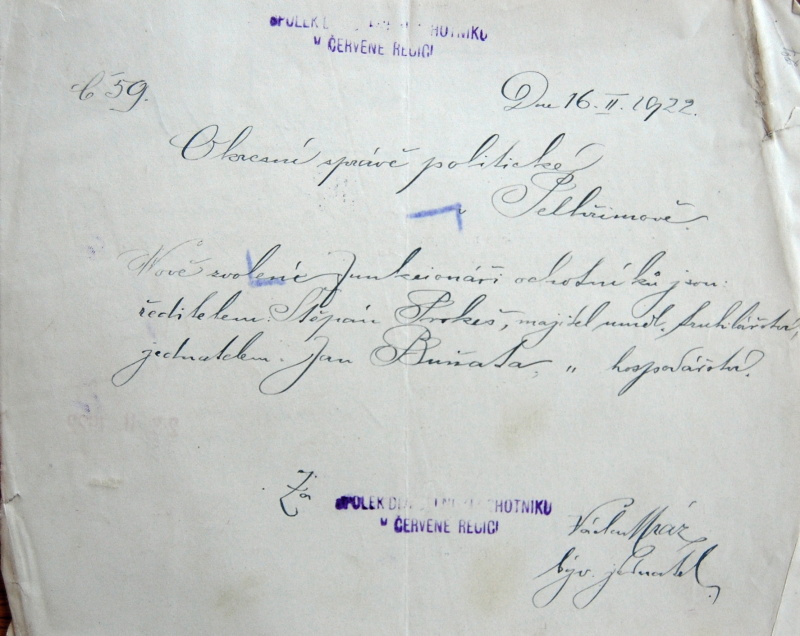 SPOLEK DIVADELNÍCH OCHOTNÍKŮ
V ČERVENÉ ŘEČICI
Č 59.
Dne 16. II. 1922.
Okresní správě politické
v Pelhřimově.
Nově zvolení funkcionáři ochotníků jsou:
ředitelem: Štěpán Prokeš, majitel uměl. truhlářství,
jednatelem: Jan Buňata, " hospodářství.
Za
SPOLEK DIVADELNÍCH OCHOTNÍKŮ
V ČERVENÉ ŘEČICI
Václav Mráz
býv. jednatel.